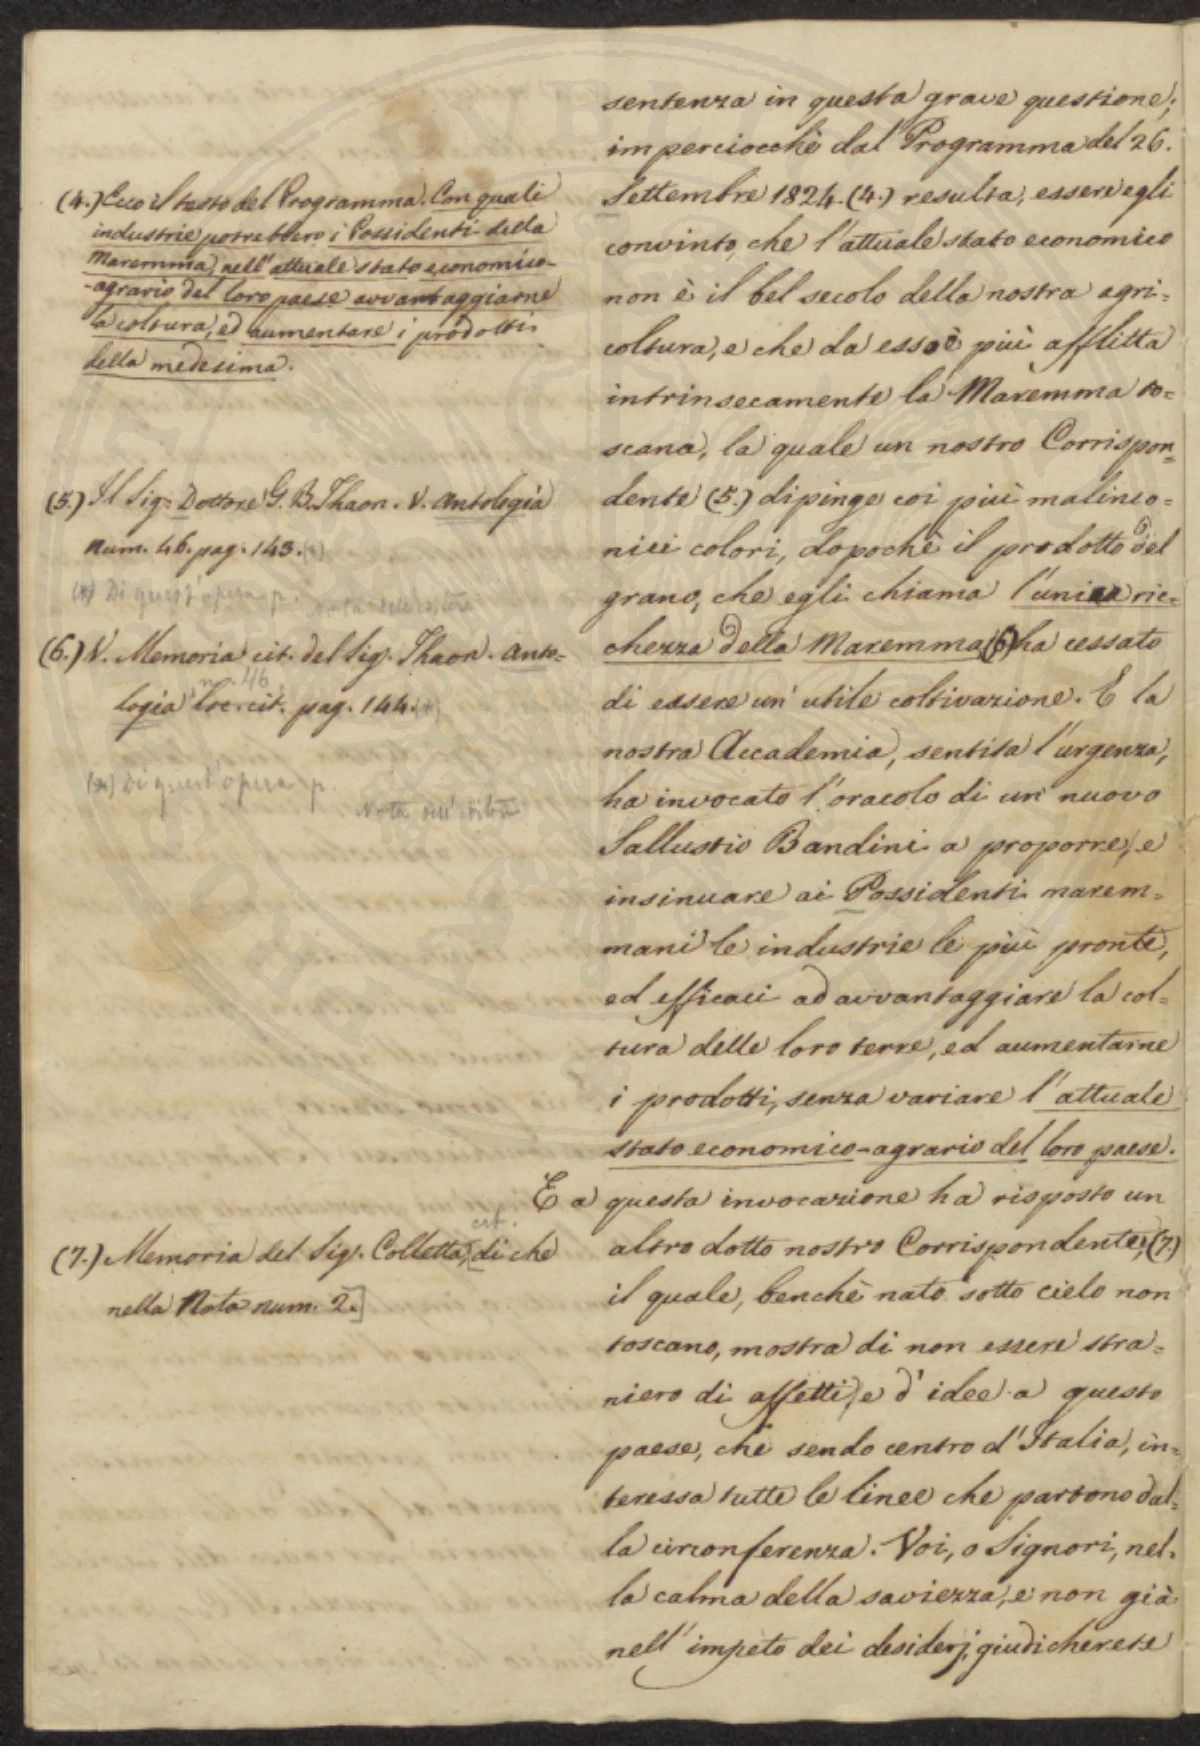 sentenza in questa grave questione;
imperciocchè dal Programma del 26.
Settembre 1824. (4.) resulta, essere egli
convinto, che l'attuale stato economico
non è il bel secolo della nostra agri=
coltura, e che da esso è più afflitta
intrinsecamente la Maremma to=
scana, la quale un nostro Corrispon=
dente (5.) dipinge coi più malinco=
nici colori, dopochè il prodotto del
grano, che egli chiama l'unica ric=
chezza della Maremma (6) ha cessato
di essere un' utile coltivazione. E la
nostra Accademia, sentita l'urgenza,
ha invocato l'oracolo di un nuovo
Sallustio Bandini a proporre, e
insinuare ai Possidenti marem=
mani le industrie le più pronte,
ed efficaci ad avvantaggiare la col=
tura delle loro terre, ed aumentarne
i prodotti, senza variare l'attuale
stato economico-agrario del loro paese.
E a questa invocazione ha risposto un
altro dotto nostro Corrispondente, (7.)
il quale, benchè nato sotto cielo non
toscano, mostra di non essere stra=
niero di affetti, e d'idee a questo
paese, che sendo centro d'Italia, in=
teressa tutte le linee che partono dal=
la circonferenza. Voi, o Signori, nel=
la calma della saviezza, e non già
nell'impeto dei desiderj, giudicherete
(4.) Ecco il testo del Programma. Con quali
industrie potrebbero i Possidenti della
Maremma, nell'attuale stato economico-
-agrario del loro paese avvantaggiarne
la coltura, ed aumentare i prodotti
della medesima.
(5.) Il Sig: Dottore G. B. Thaon. V. Antologia
num. 46. pag. 143. (*)
(*) Di quest'opera p. Nota dell'editore
(6.) V. Memoria cit. del Sig. Thaon. Anto=
n. 46
logia loc. cit. pag. 144. (*)
(*) Di quest'opera p.
Nota dell'editore
cit.
(7.) Memoria del Sig. Colletta, [di che
nella Nota num. 2.]